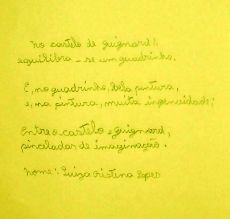 No castelo de guignard,
equilibra-se um quadrinho.
E, no quadrinho, bela pintura,
e, na pintura, muita ingenuidade;
Entre o castelo e guignard,
pinceladas de imaginação.
nome: Luiza cristina Lopes